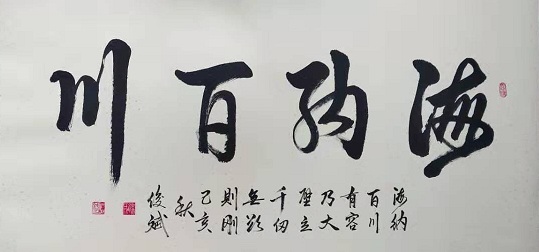 海納百川
海納
百川
有容
乃大
壁立
千仞
無欲
則剛
己亥
秋
俊斌